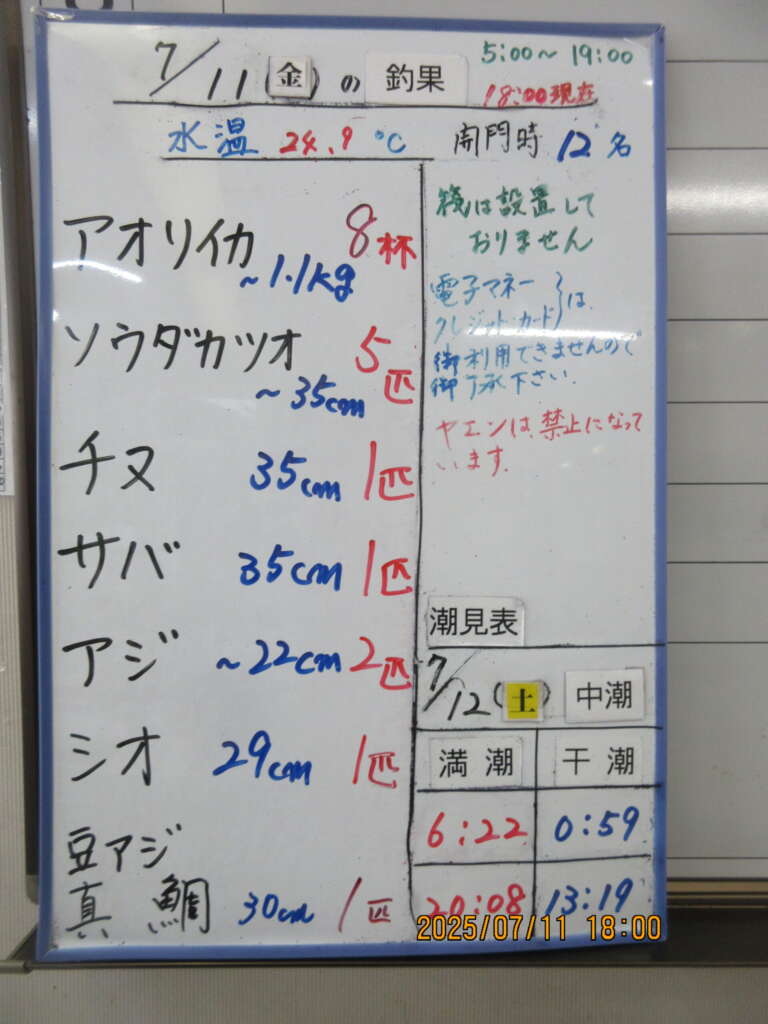 7/11(金)の 釣果
5:00~19:00
18:00現在
水温 24.9℃
開門時 12名
アオリイカ 8杯
~1.1kg
ソウダカツオ 5匹
~35cm
チヌ 35cm 1匹
サバ 35cm 1匹
アジ ~22cm 2匹
シオ 29cm 1匹
豆アジ
真鯛 30cm 1匹
筏は設置して
おりません
電子マネー
クレジット・カード}は
御利用できませんので
御了承下さい.
ヤエンは、禁止になって
います.
潮見表
7/12(土) 中潮
満潮 干潮
6:22 0:59
20:08 13:19
2025/07/11 18:00